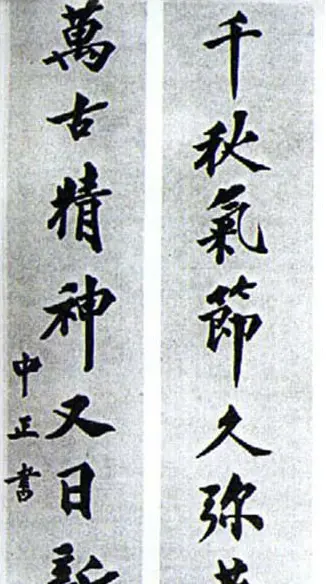 千秋氣節久弥
萬古精神又日
中正書